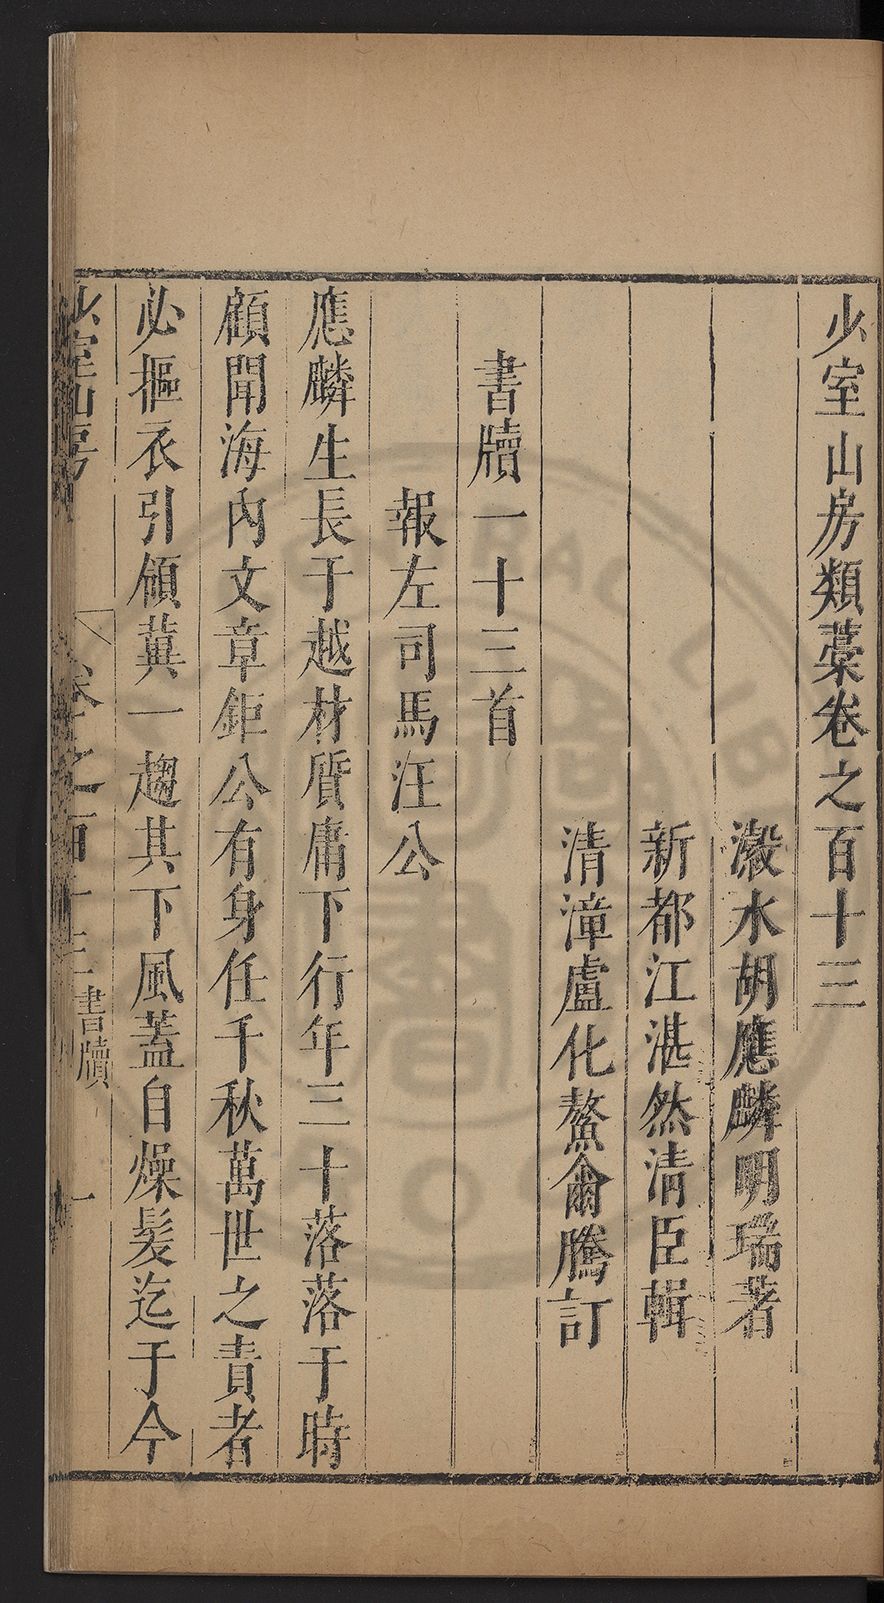 少室山房類藁卷之百十三
瀫水胡應麟明瑞著
新都江湛然清臣輯
清漳盧化鰲爾騰訂
書牘一十三首
報左司馬汪公
應麟生長于越材質庸下行年三十落落于時
顧聞海內文章鉅公有身任千秋萬世之責者
必摳衣引領冀一趨其下風蓋自燥髮迄于今
少室山房 卷之百十三 書牘 一